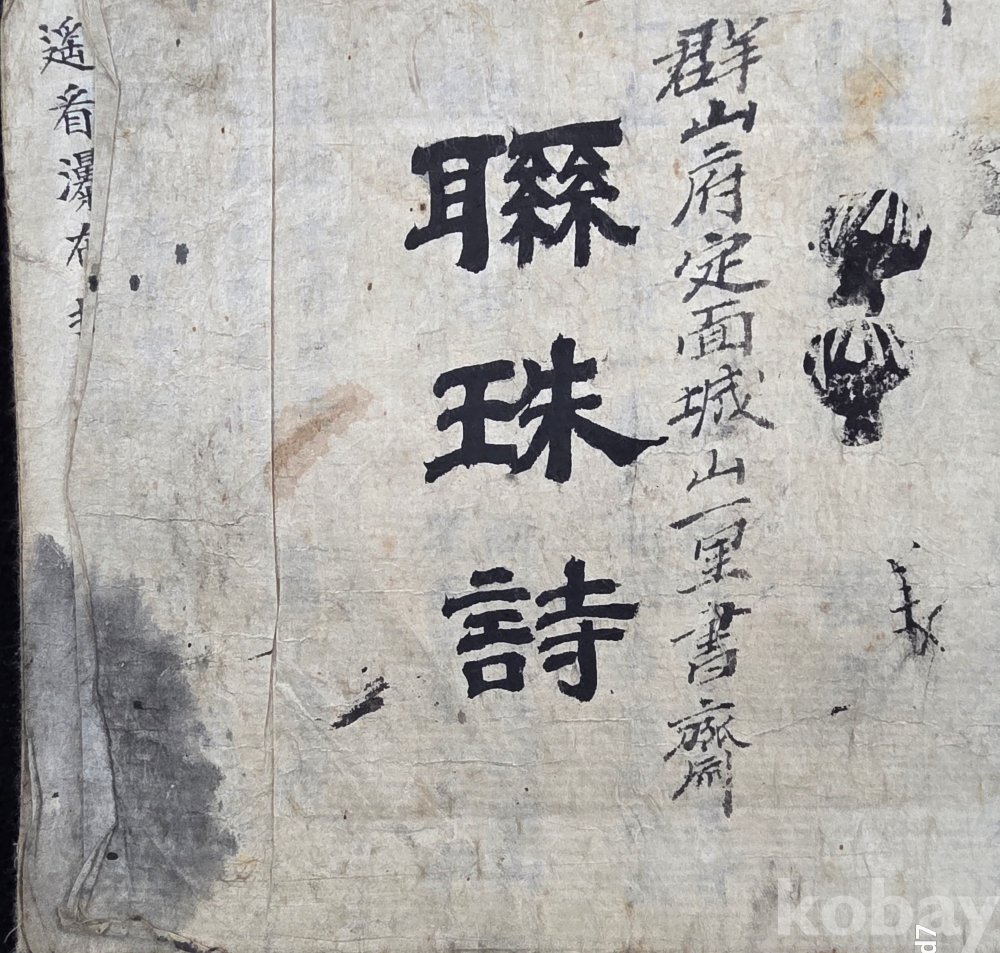 群山府定面城山里書齋
聯珠詩
遙看瀑布
kobay
d7